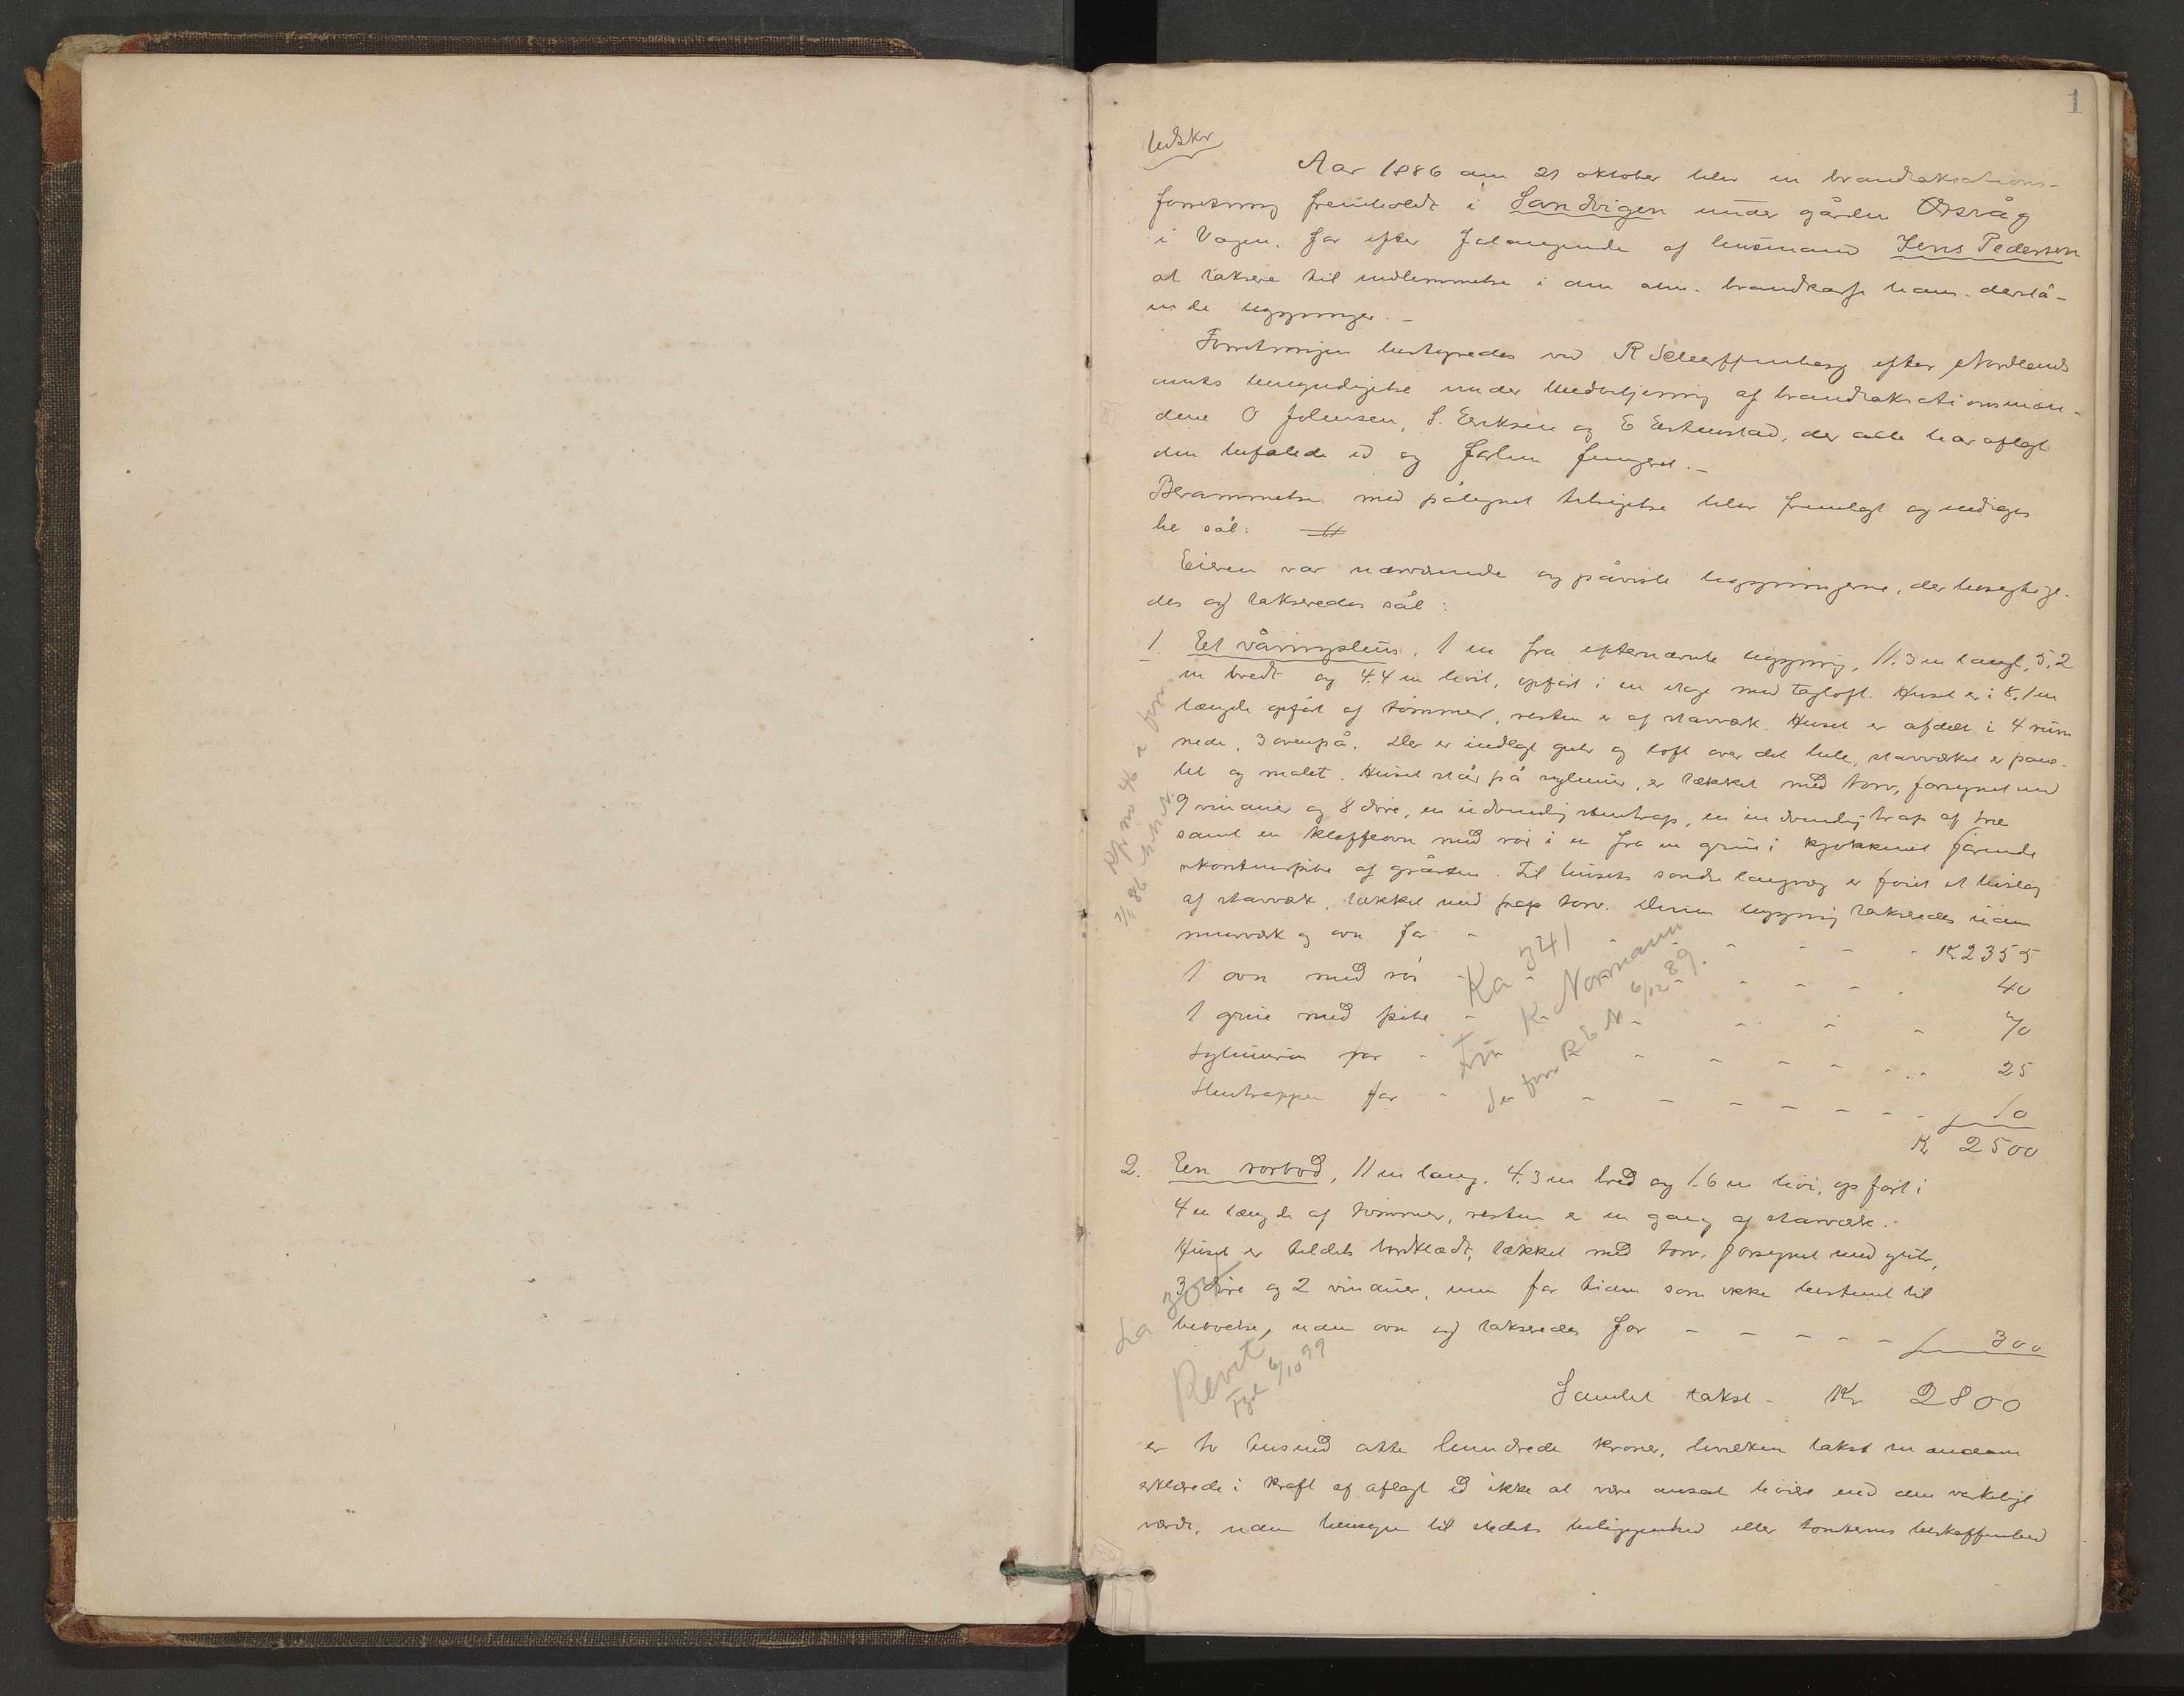 1
Udskr
Aar 1886 den 21 oktober blev en brandtaksations-
forretning fremholdt i Sandvigen under gården Ørsvåg
i Vågen, for efter forlangende af husmand Jens Pedersen
at taksere til indlemmelse i den alm. brandkasse ham derstå-
ende bygninger. -
Forretningen bestyredes ved R Scharffenberg efter Nordlands
amts bemyndigelse under medvirkning af brandtaksationsmæn-
dene O Johnsen, S. Eriksen og E, der alle har aflagt
den befalede ed og forhen fungeret. -
Berammelse med påtegnet tilsigelse blev fremlagt og
her sål:
Eieren var nærværende og påviste bygningerne, der besigtige-
des og takseredes sål:
1. Et våningshus, 1 m fra efternævnte bygning, 11.3 m langt, 5.2
m bredt og 4.4 m høit, opført i en etage med tagloft. Huset er i 8,1 m
længde opført af tømmer, resten er af stavværk. Huset er afdelt i 4 rum
nede, 3 ovenpå. Der er indlagt gulv og loft over det hele, stavværket er pane-
let og malet. Huset står på sylmur, er tækket med torv, forsynet med
9 vinduer og 8 døre, en udvendig stentrap, en indvendig trap af træ
samt en kloffeovn med rør i en fra en grue i kjøkkenet førende
skorstenspibe af gråsten. Til husets søndre langvæg er føiet et bislag
af stavværk, tækket med torv. Denne bygning takseredes uden
murværk og ovn for - - - - - - K 2355
1 ovn med rør - - - - - - 40
1 grue med pibe - - - - - - 70
Sylmuren for - - - - - - 25
Stentrappen for - - - - - - 10
Kr 2500
2. En rorbod, 11 m lang, 4.3 m bred og 1.6 m høi, opført i
4 m længde af tømmer, resten er en gang af stavværk.
Huset er heldels bordklædt, tækket med torv, forsynet med gulv,
3 døre og 2 vinduer, men for tiden som ikke bestemt til
beboelse, uden ovn og takseredes for - - - - - 300
Samlet takst - Kr 2800
er to tusind otte hundrede kroner, hvilken takst mændene
erklærede i kraft af aflagt ed ikke at være ansat høiere end den virkelige
værdi, uden hensyn til stedets beliggenhed eller tomternes beskaffenhed
Ka 341
K. Normann
6/12 89.
Revit
6/10 99